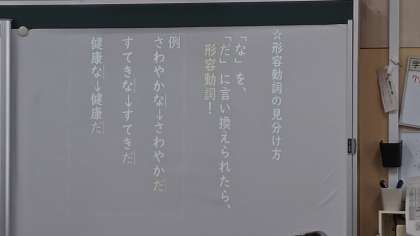 ☆形容動詞の見分け方
「な」を、
「だ」に言い換えられたら、
形容動詞！
例
さわやかな→さわやかだ
すてきな→すてきだ
健康な→健康だ